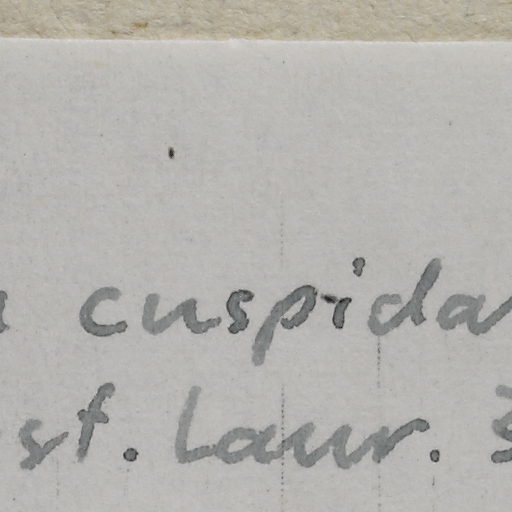 cuspida
st. Laur.